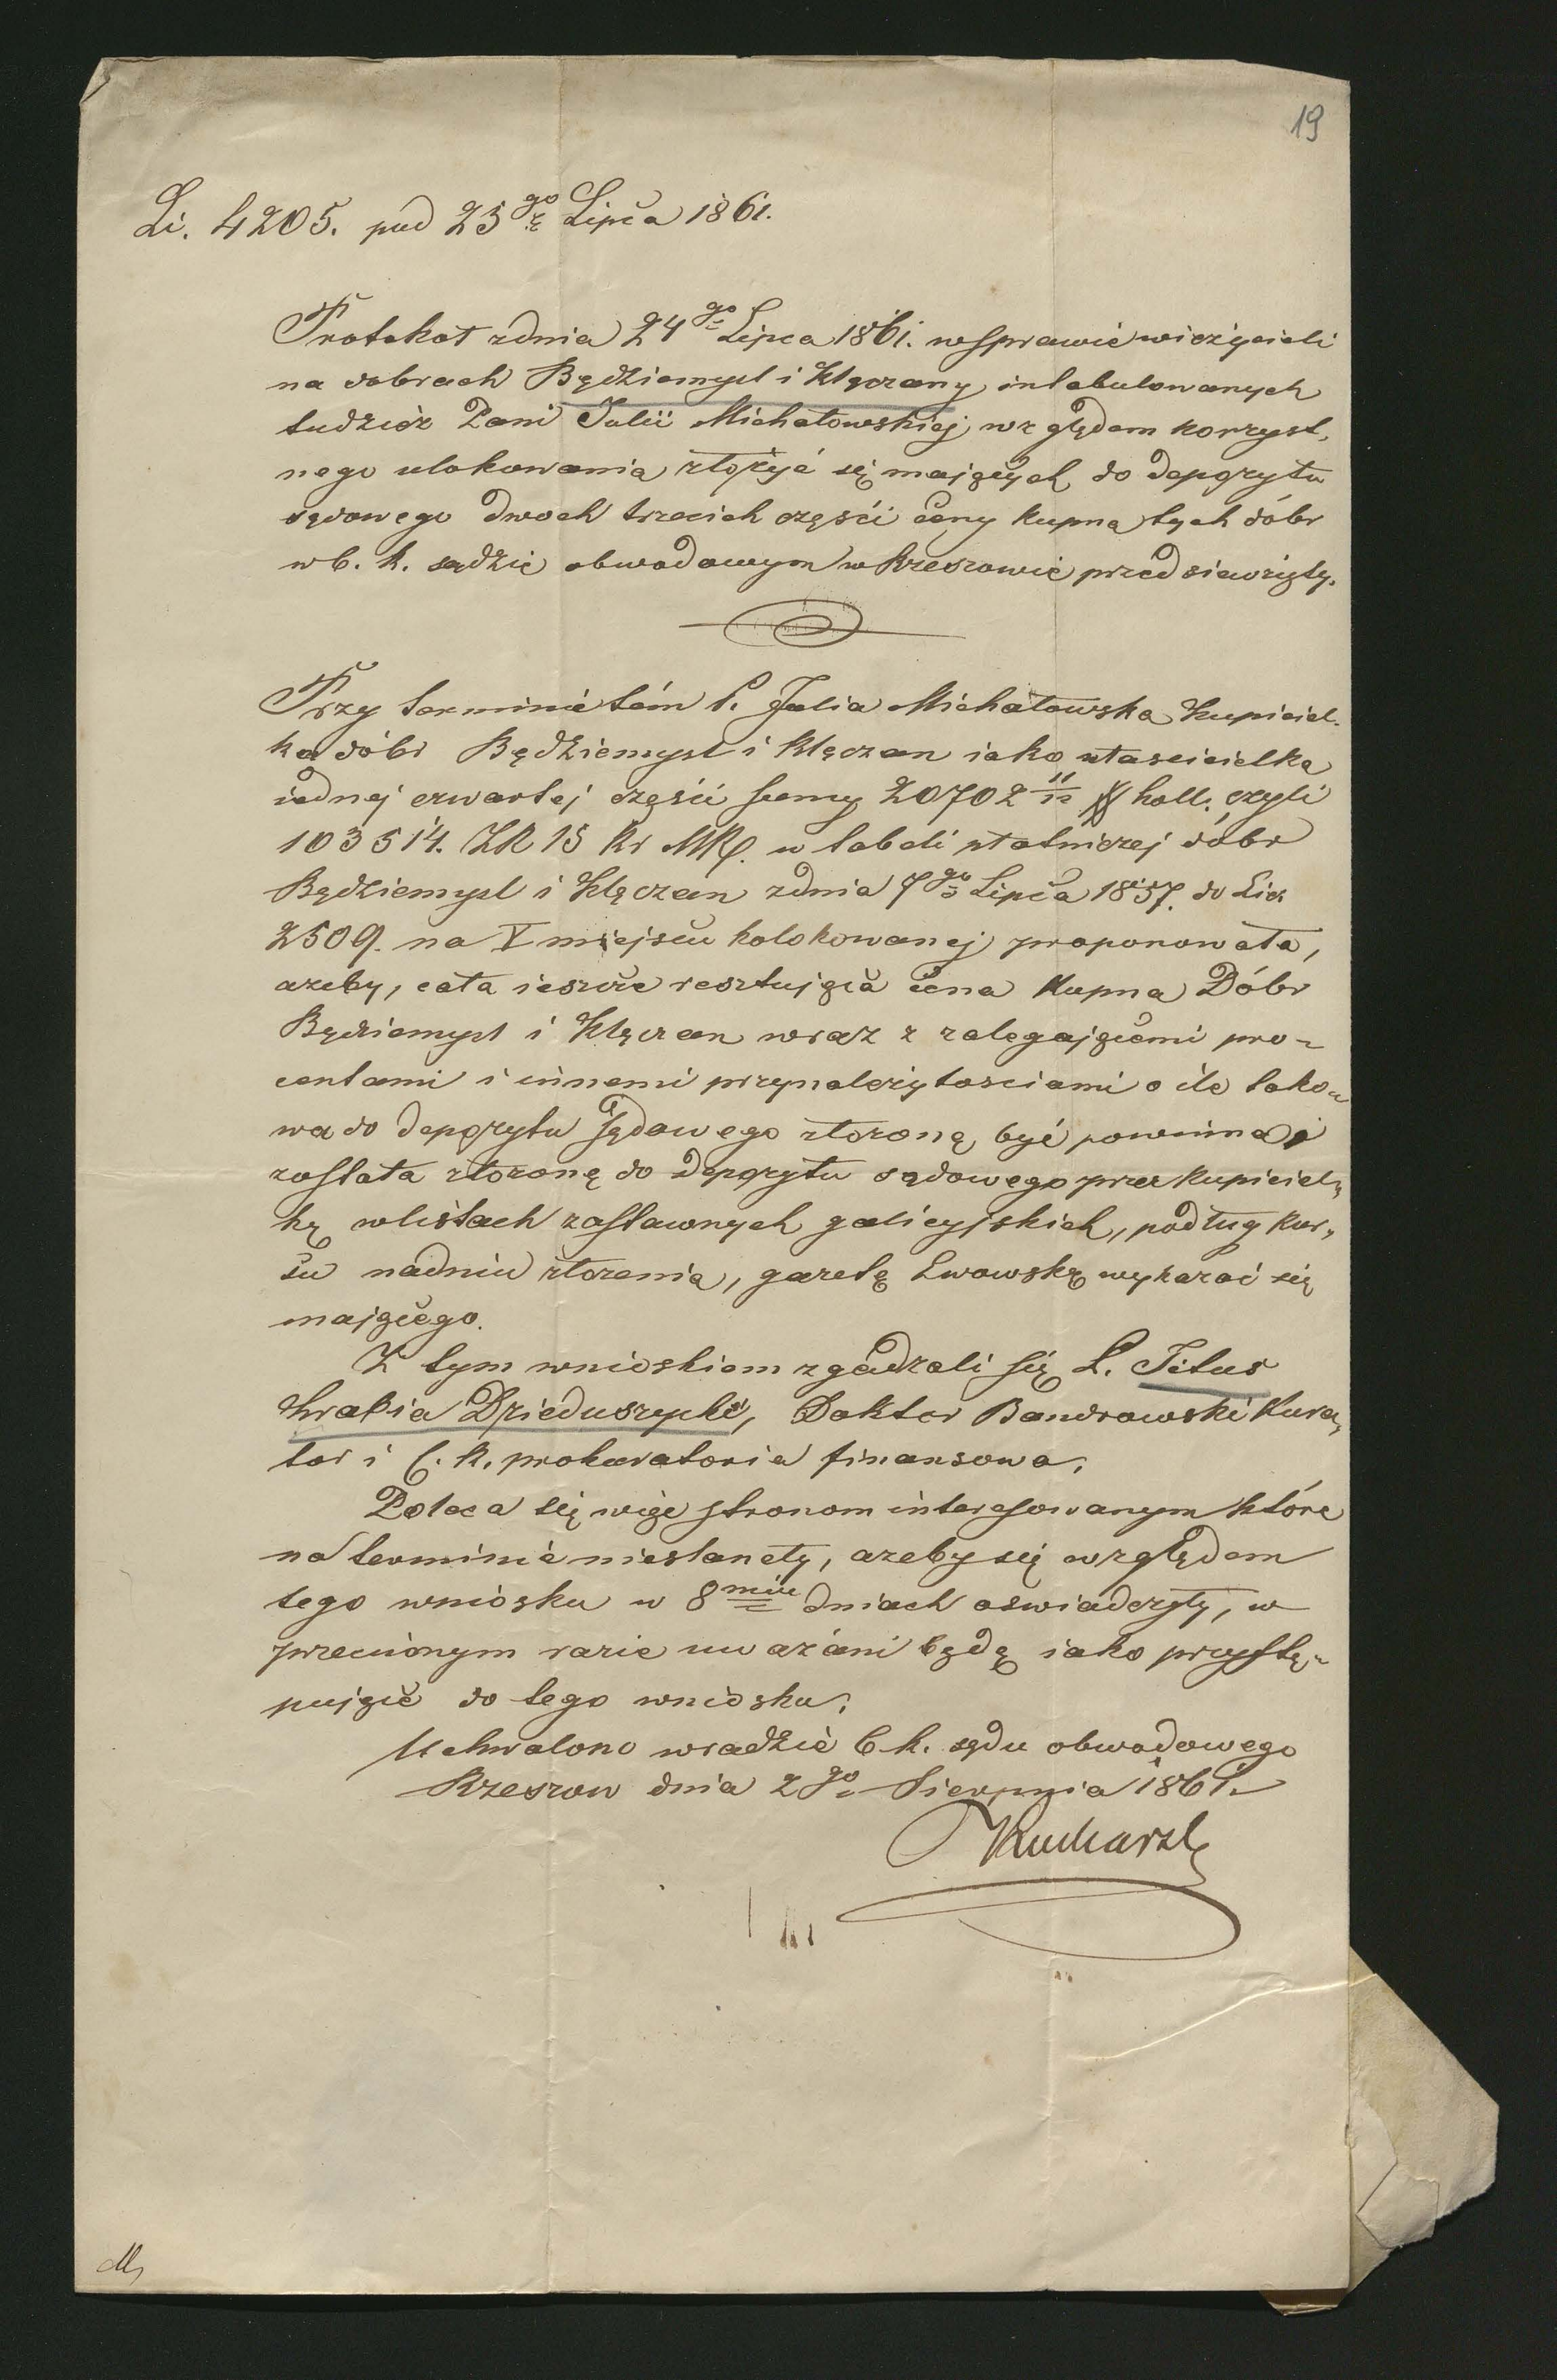 19
Li. 4205. pod 25go Lipca 1861.
Protokoł zdnia 24go Lipca 1861. wsprawie wierzycieli
na dobrach Będziemyśl i Klęczany intabulowanych
tudzież Pani Julii Michałowskiej względem korzyst,
nego ulokowania złożyć się mających do depozytu
sądowego dwoch trzecich części ceny kupna tych dóbr
w C. k. sądzie obwodowym w Rzeszowie przedsiewzięty.
Przy terminie tém P. Julia Michałowska Kupiciel-
ka dóbr Będziemyśl i Klęczan iako własicielka
iednej czwartej części sumy 20702 11/12 # holl. czyli
103514. ZR 15 kr MK. w tabeli płatniczej dóbr
Będziemyśl i Klęczan zdnia 7go Lipca 1857. do Licz
2509. na V miejscu kolokowanej proponowała,
azeby, cała ieszcze resztująca cena Kupna Dóbr
Będziemyśl i Klęczan wraz z zalegającemi pro-
centami i innemi przynależytosciami o ile tako-
wa do depozytu sądowego złozoną być powinna
zostala złozoną do depozytu sądowego przez kupiciel,
kę wlistach zastawnych galicyjskich, podług kur,
su nadniu złozenia, gazetą Lwowską wykazać się
mającego.
Z tym wnioskiem zgadzali się P. Titus
hrabia Dzieduszycki, Doktor Bandrowski Kura,
tor i C. k. prokuratoria finansowa.
Poleca się więc stronom interesowanym które
na terminie niestanęły, azeby się względem
tego wniosku w 8miu dniach oswiadczyły, w
przeciwnym razie uwazáni będą iako przystę-
pujące do tego wniosku.
Uchwalono wradzie C. k. sądu obwodowego
Rzeszow dnia 2go Sierpnia 1861.